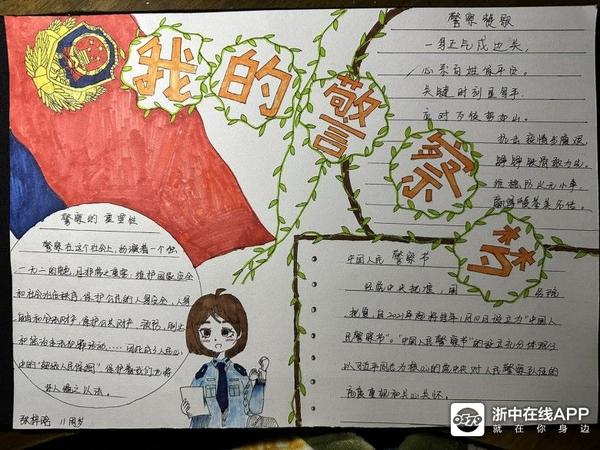 我的警察梦
警察赞歌
一身正气戍边关,
心系百姓保平安。
关键时刻显身手,
应对万侯势如山。
抗击疫情
铮铮铁骨敢为先。
维稳防火无小事,
警察的重要性
警察在这个社会上,扮演着一个独
一无二的角色,也非常之重要:维护国家安全
和社会治安秩序,保护公民的人身安全、人身
自由和合法财产,保护公共财产,预防、制止
和惩治违法犯罪活动……因此成了人民心
中的"超级人民保镖"保护着我们也将
坏人绳之以法。
中国人民警察节
经党中央批准、国 务院
批复,自2021年起将每年1月10日设立为"中国人
民警察节"。"中国人民警察节"的设立充分体现了
以习近平同志为核心的党中央对人民警察队伍的
高度重视和关心关怀。
张梓 11周岁
浙中在线APP
就在你身边